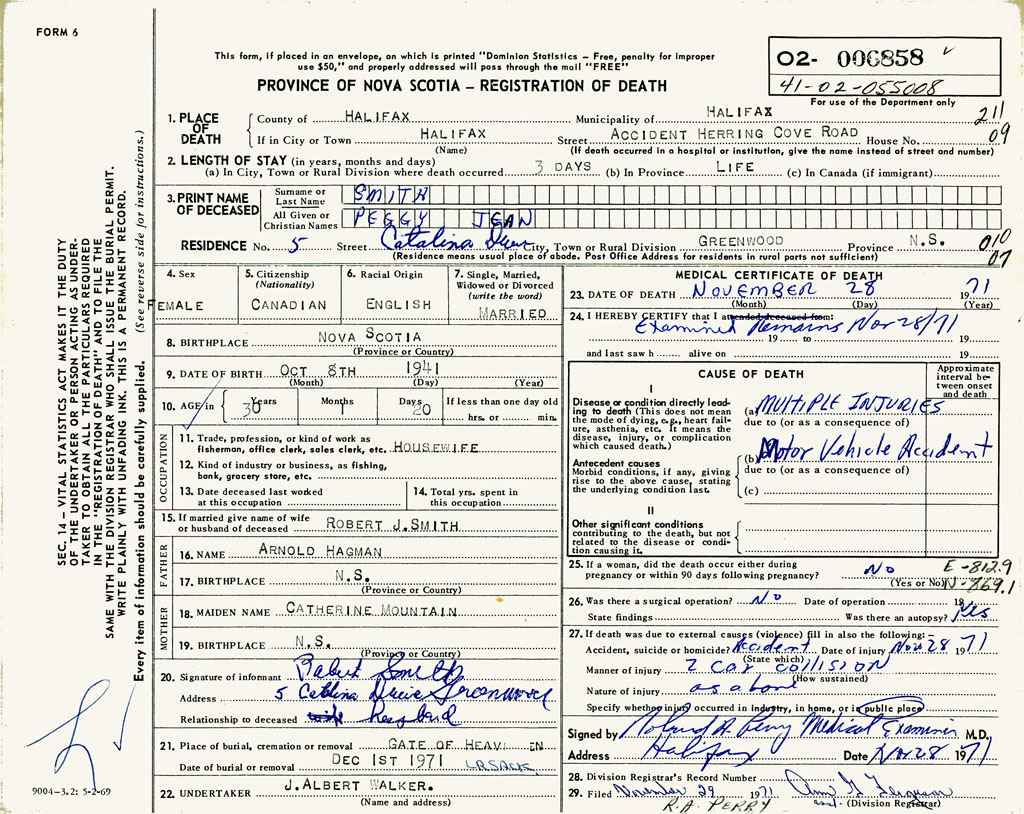 FORM 6
This form, if placed in an envelope, on which is printed "Dominion Statistics – Free, penalty for improper
use $50," and properly addressed will pass through the mail "FREE"
PROVINCE OF NOVA SCOTIA – REGISTRATION OF DEATH
02- 006858
41-02-055008
For use of the Department only
1. PLACE OF DEATH
County of HALIFAX Municipality of HALIFAX 211
If in City or Town HALIFAX Street ACCIDENT HERRING COVE ROAD House No. 09
(Name) (If death occurred in a hospital or institution, give the name instead of street and number)
2. LENGTH OF STAY (in years, months and days)
(a) In City, Town or Rural Division where death occurred 3 DAYS (b) In Province LIFE (c) In Canada (if immigrant)
3. PRINT NAME OF DECEASED
Surname or Last Name SMITH
All Given or Christian Names PEGGY JEAN
RESIDENCE No. 5 Street Catalina Drive City, Town or Rural Division GREENWOOD Province N.S. 010
(Residence means usual place of abode. Post Office Address for residents in rural parts not sufficient) 07
4. Sex
FEMALE
5. Citizenship
(Nationality)
CANADIAN
6. Racial Origin
ENGLISH
7. Single, Married,
Widowed or Divorced
(write the word)
MARRIED
8. BIRTHPLACE NOVA SCOTIA
(Province or Country)
9. DATE OF BIRTH OCT 8TH 1941
(Month) (Day) (Year)
10. AGE in Years Months Days If less than one day old
30 1 20 hrs. or min.
OCCUPATION
11. Trade, profession, or kind of work as
fisherman, office clerk, sales clerk, etc. HOUSEWIFE
12. Kind of industry or business, as fishing,
bank, grocery store, etc.
13. Date deceased last worked
at this occupation
14. Total yrs. spent in
this occupation
15. If married give name of wife
or husband of deceased ROBERT J. SMITH
FATHER
16. NAME ARNOLD HAGMAN
17. BIRTHPLACE N.S.
(Province or Country)
MOTHER
18. MAIDEN NAME CATHERINE MOUNTAIN
19. BIRTHPLACE N.S.
(Province or Country)
20. Signature of informant Robert Smith
Address 5 Catalina Drive Greenwood
Relationship to deceased husband
21. Place of burial, cremation or removal GATE OF HEAVEN
Date of burial or removal DEC 1ST 1971 LR SACK
22. UNDERTAKER J. ALBERT WALKER.
(Name and address)
MEDICAL CERTIFICATE OF DEATH
23. DATE OF DEATH NOVEMBER 28 1971
(Month) (Day) (Year)
24. I HEREBY CERTIFY that I attended deceased from:
Examined Remains Nov 28/71
19 to 19
and last saw h alive on 19
CAUSE OF DEATH
Approximate interval between onset and death
I
Disease or condition directly leading to death (This does not mean the mode of dying, e.g., heart failure, asthenia, etc. It means the disease, injury, or complication which caused death.)
(a) MULTIPLE INJURIES
due to (or as a consequence of)
Antecedent causes
Morbid conditions, if any, giving rise to the above cause, stating the underlying condition last.
(b) Motor Vehicle Accident
due to (or as a consequence of)
(c)
II
Other significant conditions
contributing to the death, but not related to the disease or condition causing it.
25. If a woman, did the death occur either during
pregnancy or within 90 days following pregnancy? No
(Yes or No)
E-812.9
N-869.1
26. Was there a surgical operation? No Date of operation 19
State findings Was there an autopsy? Yes
27. If death was due to external causes (violence) fill in also the following:–
Accident, suicide or homicide? Accident Date of injury Nov 28 1971
(State which)
Manner of injury 2 car collision
(How sustained)
Nature of injury as above
Specify whether injury occurred in industry, in home, or in public place
Signed by Roland A. Perry Medical Examiner M.D.
Address Halifax Date Nov 28 1971
28. Division Registrar's Record Number
29. Filed November 29 1971 Ann G Ferguson
asst. (Division Registrar)
R.A. PERRY
SEC. 14 – VITAL STATISTICS ACT MAKES IT THE DUTY
OF THE UNDERTAKER OR PERSON ACTING AS UNDER-
TAKER TO OBTAIN ALL THE PARTICULARS REQUIRED
IN THE "REGISTRATION OF DEATH" AND TO FILE THE
SAME WITH THE DIVISION REGISTRAR WHO SHALL ISSUE THE BURIAL PERMIT.
WRITE PLAINLY WITH UNFADING INK. THIS IS A PERMANENT RECORD.
Every item of information should be carefully supplied. (See reverse side for instructions.)
9004-3.2: 5-2-69